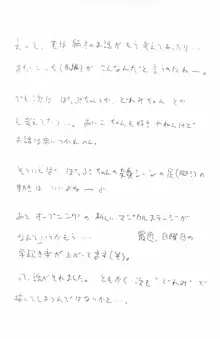 えーと、実は続きのお話がもう考えてあったり…
またこーゆー(前編)がこんなんだったと言うのにねー。
でも次は ぽっぷちゃんか、どれみちゃん とか
も考えてたり…。あいこちゃんも好きやねんけど
お話は思いつかんのん。
そういえば ぽっぷちゃんの変身シーンの足(脚?)の
動きは いいよねー♪
あと オープニングの 新しい マジカルステージが
なんていうかもう… 最近、日曜日の
早起き率が上がってます(笑)。
って、話がそれました。ともかく 次も"どれみ"で
描いてしまうんではなかろーと…。